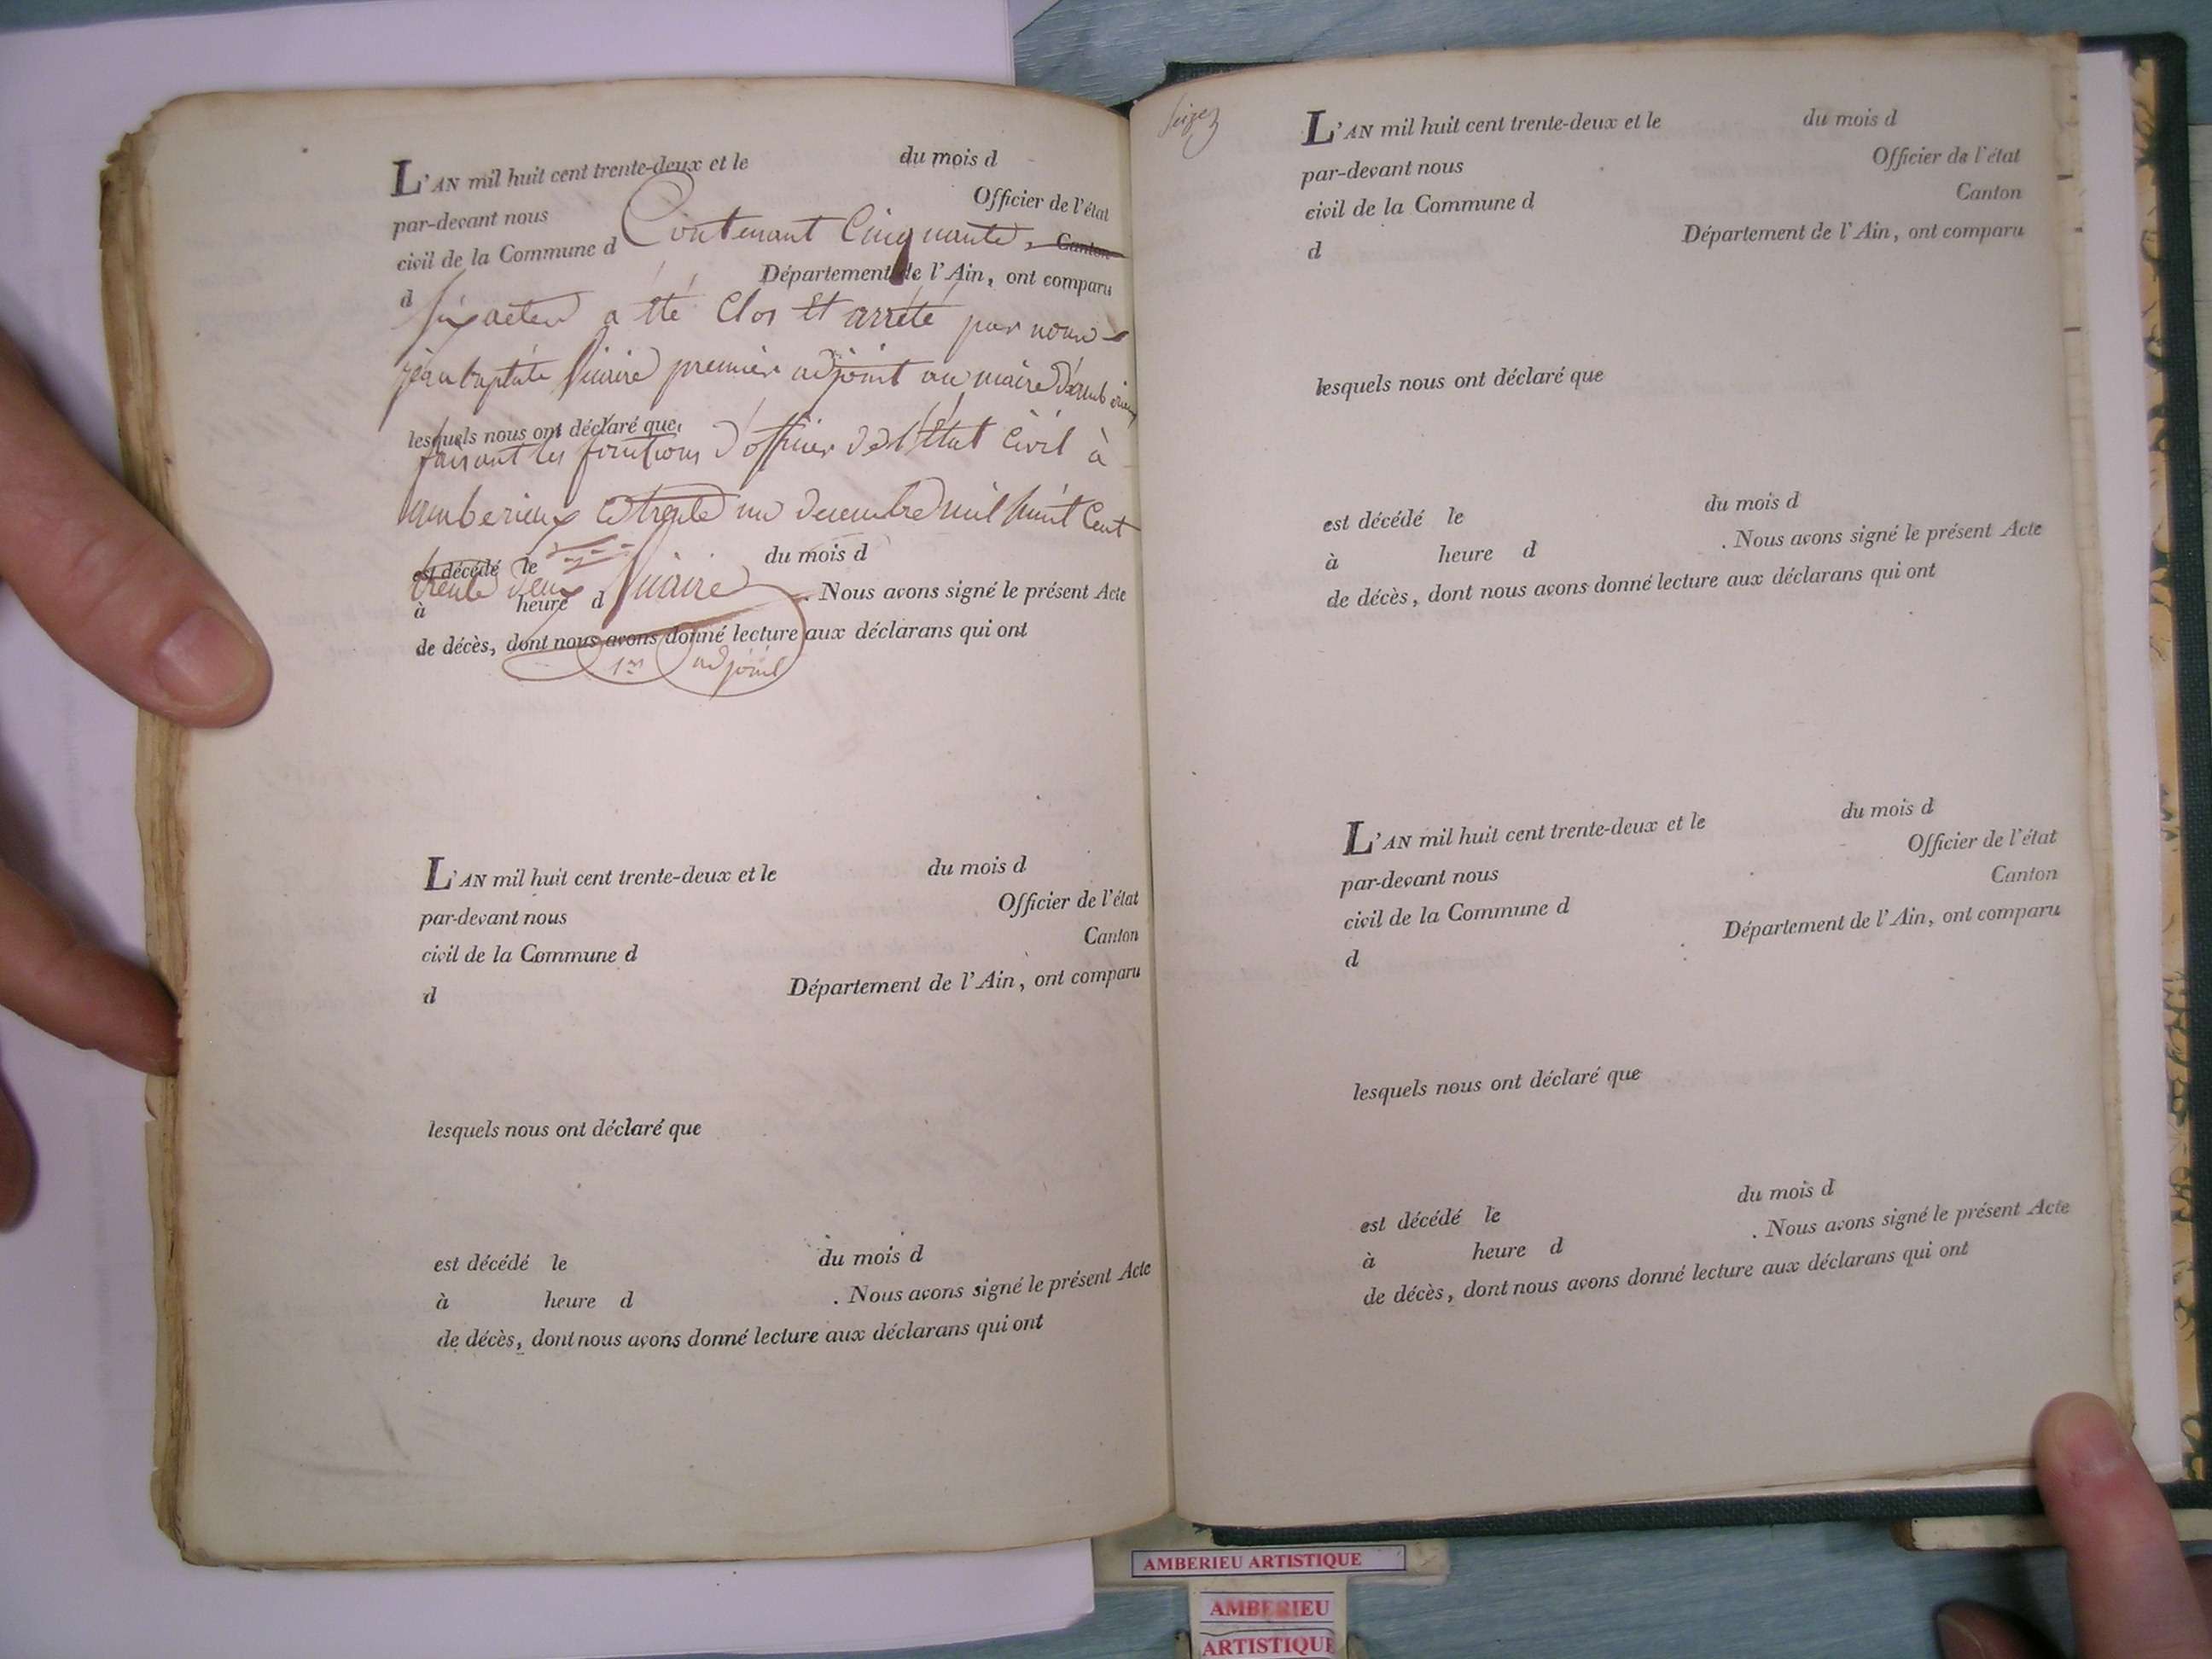 L'AN mil huit cent trente-deux et le du mois d
par-devant nous Officier de l'état
civil de la Commune d Contenant Cinquante, Canton
d Département de l'Ain, ont comparu
Six actes a été Clos Et arrêté par nous
jean baptiste premier adjoint au maire d'amberieux
lesquels nous ont déclaré que
faisant les fonctions d'officier de l'Etat Civil à
amberieux ce trente un decembre mil huit Cent
est décédé le du mois d
trente deux
à heure d . Nous avons signé le présent Acte
de décès, dont nous avons donné lecture aux déclarans qui ont
1er adjoint
L'AN mil huit cent trente-deux et le du mois d
par-devant nous Officier de l'état
civil de la Commune d Canton
d Département de l'Ain, ont comparu
lesquels nous ont déclaré que
est décédé le du mois d
à heure d . Nous avons signé le présent Acte
de décès, dont nous avons donné lecture aux déclarans qui ont
Seize
L'AN mil huit cent trente-deux et le du mois d
par-devant nous Officier de l'état
civil de la Commune d Canton
d Département de l'Ain, ont comparu
lesquels nous ont déclaré que
est décédé le du mois d
à heure d . Nous avons signé le présent Acte
de décès, dont nous avons donné lecture aux déclarans qui ont
L'AN mil huit cent trente-deux et le du mois d
par-devant nous Officier de l'état
civil de la Commune d Canton
d Département de l'Ain, ont comparu
lesquels nous ont déclaré que
est décédé le du mois d
à heure d . Nous avons signé le présent Acte
de décès, dont nous avons donné lecture aux déclarans qui ont
AMBERIEU ARTISTIQUE
AMBERIEU
ARTISTIQUE